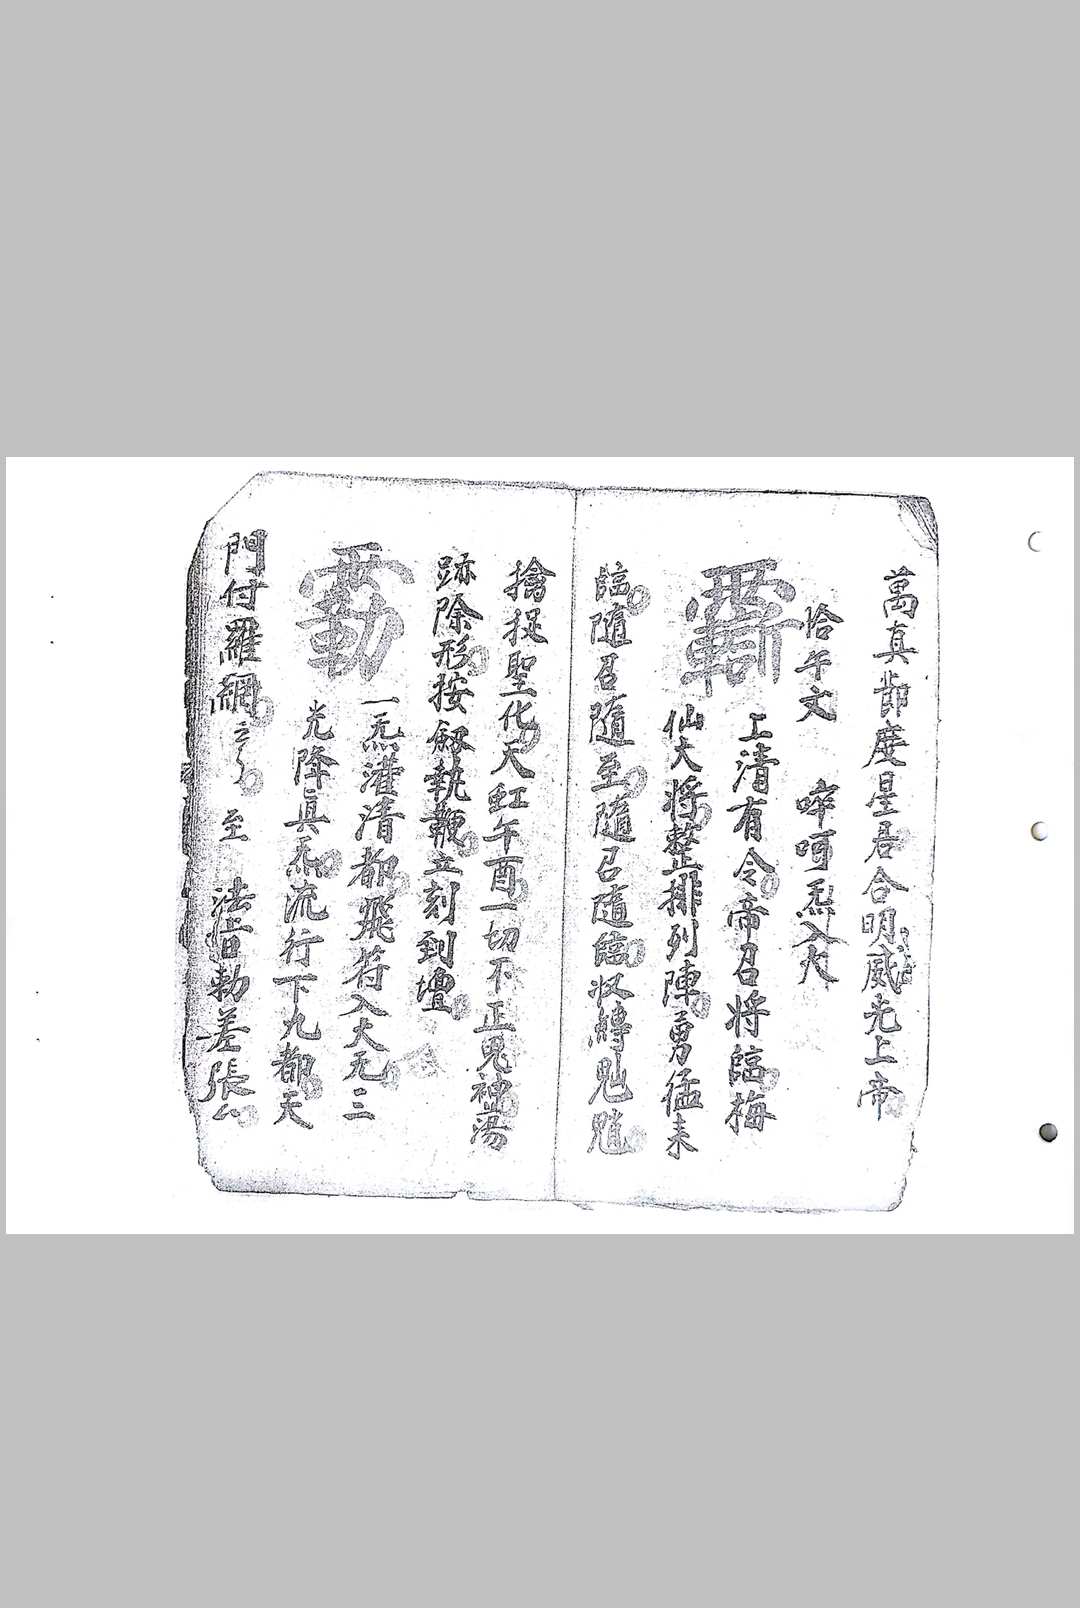 萬真節度星君合明威光上帝
恰午文 啐呵炁入大
上清有令帝召将臨梅
仙大将整排列陣勇猛未
臨隨召隨至隨召隨臨収縛鬼
擒捉聖化天虹午酉一切不正鬼神蕩
跡除形按劔執鞭立刻到壇
一炁灌清都飛符入大无三
光降真炁流行下九都天
門付羅網 至 法旨勅差張